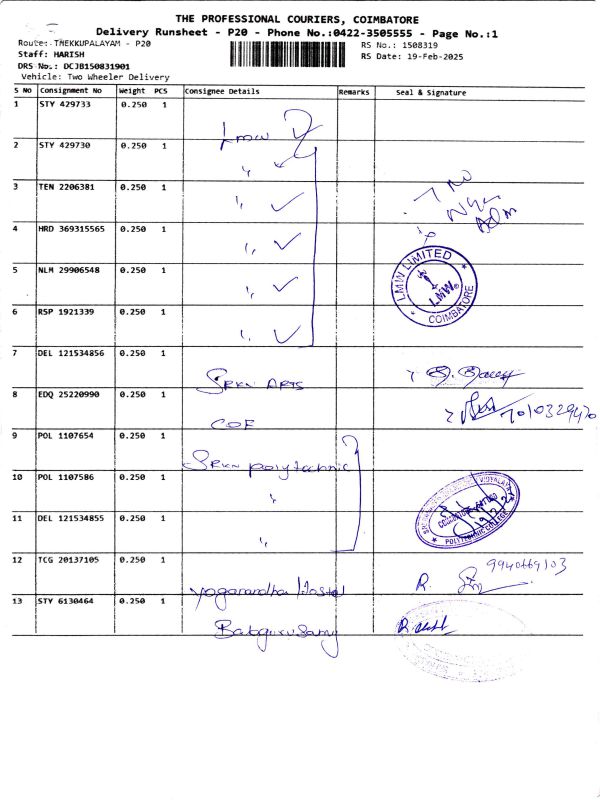 THE PROFESSIONAL COURIERS, COIMBATORE
Delivery Runsheet - P20 - Phone No.:0422-3505555 - Page No.:1
Route: THEKKUPALAYAM - P20
RS No.: 1508319
Staff: HARISH
RS Date: 19-Feb-2025
DRS No.: DCJB150831901
Vehicle: Two Wheeler Delivery
S NO Consignment No Weight PCS Consignee Details Remarks Seal & Signature
1 STY 429733 0.250 1
Lmw
2 STY 429730 0.250 1
3 TEN 2206381 0.250 1
4 HRD 369315565 0.250 1
LMW LIMITED
LMW
COIMBATORE
5 NLM 29906548 0.250 1
6 RSP 1921339 0.250 1
7 DEL 121534856 0.250 1
SRKV ARTS
8 EDQ 25220990 0.250 1
COE
7010329470
9 POL 1107654 0.250 1
SRKV polytechnic
10 POL 1107586 0.250 1
VIDYALAYA
POLYTECHNIC COLLEGE
11 DEL 121534855 0.250 1
12 TCG 20137105 0.250 1
9940669103
Hostel
13 STY 6130464 0.250 1
Balagurusamy